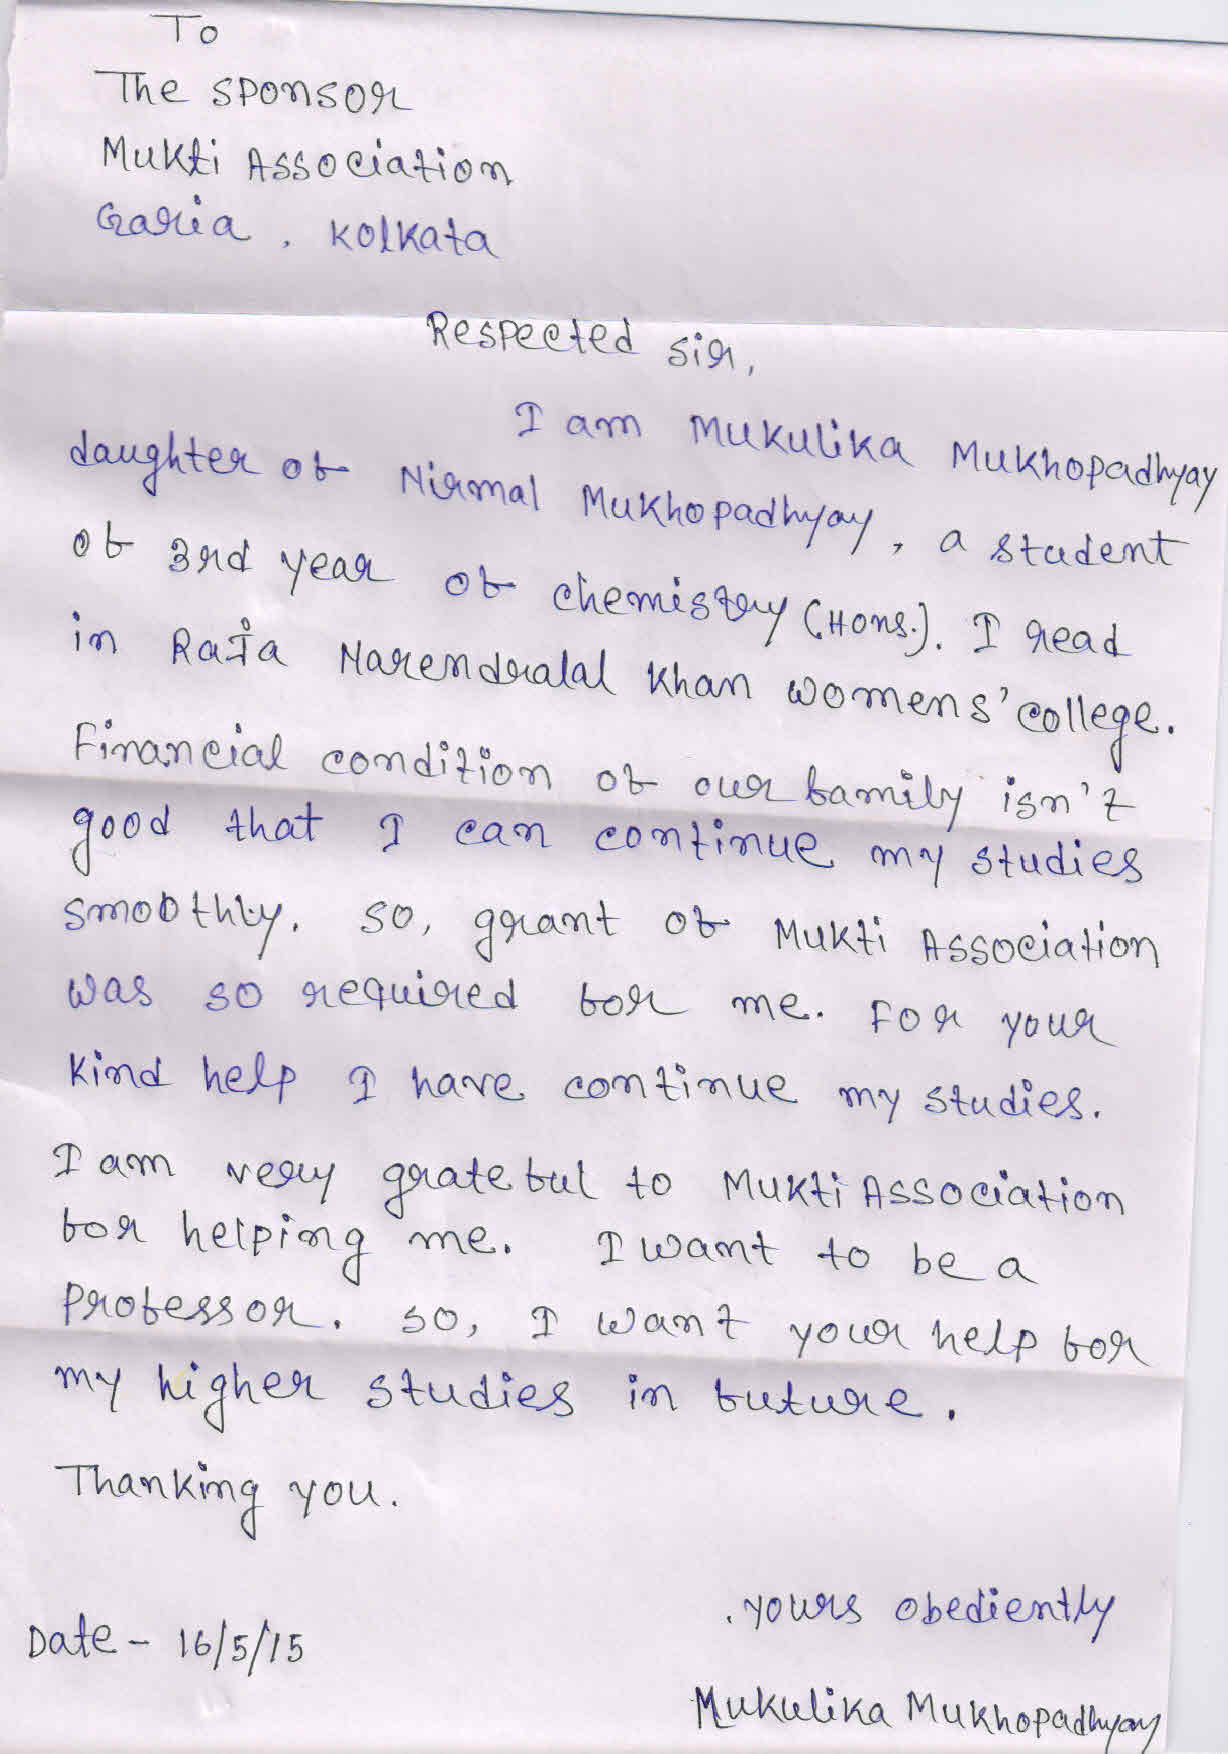 To
The Sponsor
Mukti Association
Garia, Kolkata
Respected Sir,
I am Mukulika Mukhopadhyay
daughter of Nirmal Mukhopadhyay, a student
of 3rd year of chemistry (Hons.). I read
in Raja Narendralal Khan Womens' college.
Financial condition of our family isn't
good that I can continue my studies
smoothly. So, grant of Mukti Association
was so required for me. For your
kind help I have continue my studies.
I am very grateful to Mukti Association
for helping me. I want to be a
Professor. So, I want your help for
my higher studies in future.
Thanking you.
Yours obediently
Date - 16/5/15
Mukulika Mukhopadhyay